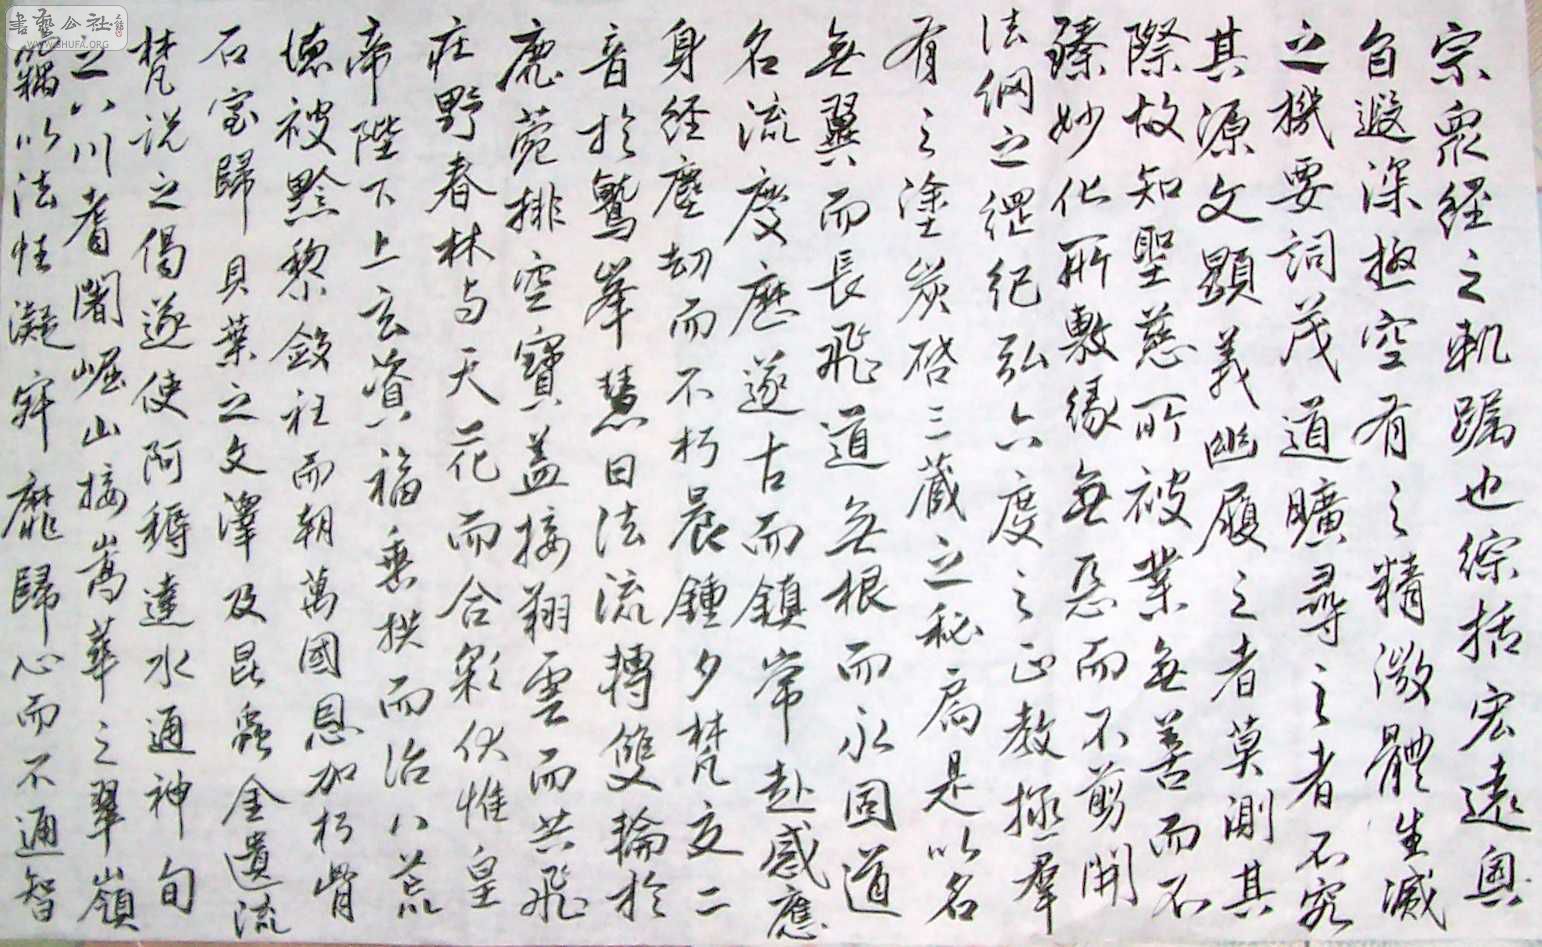 書藝公社
WWW.SHUFA.ORG
宗眾經之軌躅也綜括宏遠奧
旨遐深極空有之精微體生滅
之機要詞茂道曠尋之者不究
其源文顯義幽履之者莫測其
際故知聖慈所被業無善而不
臻妙化所敷緣無惡而不剪開
法網之綱紀弘六度之正教拯羣
有之塗炭啓三藏之秘扃是以名
無翼而長飛道無根而永固道
名流慶歷遂古而鎮常赴感應
身經塵劫而不朽晨鍾夕梵交二
音於鷲峯慧日法流轉雙輪於
鹿菀排空寶蓋接翔雲而共飛
莊野春林与天花而合彩伏惟皇
帝陛下上玄資福垂拱而治八荒
德被黔黎斂衽而朝萬國恩加朽骨
石室歸貝葉之文澤及昆蟲金匱流
梵說之偈遂使阿耨達水通神甸
之八川耆闍崛山接嵩華之翠嶺
竊以法性凝寂靡歸心而不通智